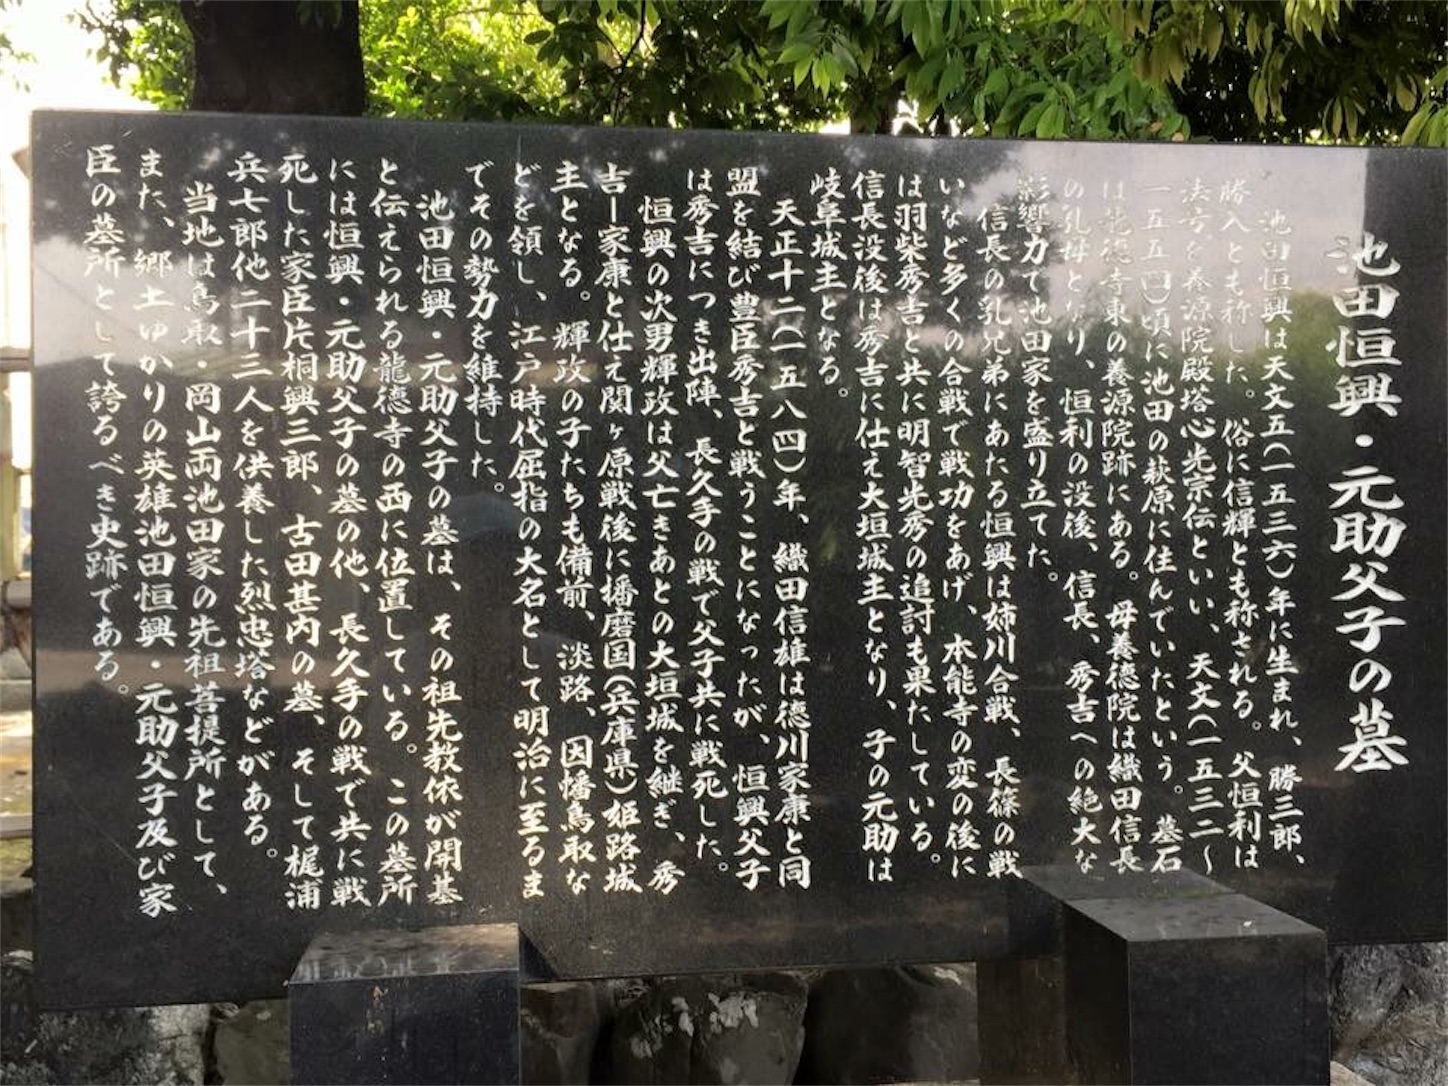 池田恒興・元助父子の墓
池田恒興は天文五(一五三六)年に生まれ、勝三郎、
勝入とも称した。俗に信輝とも称される。父恒利は
法号を養源院殿塔心光宗伝といい、天文(一五三二〜
一五五四)頃に池田の萩原に住んでいたという。墓石
は龍徳寺東の養源院跡にある。母養徳院は織田信長
の乳母となり、恒利の没後、信長、秀吉への絶大な
影響力で池田家を盛り立てた。
信長の乳兄弟にあたる恒興は姉川合戦、長篠の戦
いなど多くの合戦で戦功をあげ、本能寺の変の後に
は羽柴秀吉と共に明智光秀の追討も果たしている。
信長没後は秀吉に仕え大垣城主となり、子の元助は
岐阜城主となる。
天正十二(一五八四)年、織田信雄は徳川家康と同
盟を結び豊臣秀吉と戦うことになったが、恒興父子
は秀吉につき出陣、長久手の戦で父子共に戦死した。
恒興の次男輝政は父亡きあとの大垣城を継ぎ、秀
吉ー家康と仕え関ヶ原戦後に播磨国(兵庫県)姫路城
主となる。輝政の子たちも備前、淡路、因幡鳥取な
どを領し、江戸時代屈指の大名として明治に至るま
でその勢力を維持した。
池田恒興・元助父子の墓は、その祖先教依が開基
と伝えられる龍徳寺の西に位置している。この墓所
には恒興・元助父子の墓の他、長久手の戦で共に戦
死した家臣片桐興三郎、古田甚内の墓、そして梶浦
兵七郎他二十三人を供養した烈忠塔などがある。
当地は鳥取・岡山両池田家の先祖菩提所として、
また、郷土ゆかりの英雄池田恒興・元助父子及び家
臣の墓所として誇るべき史跡である。